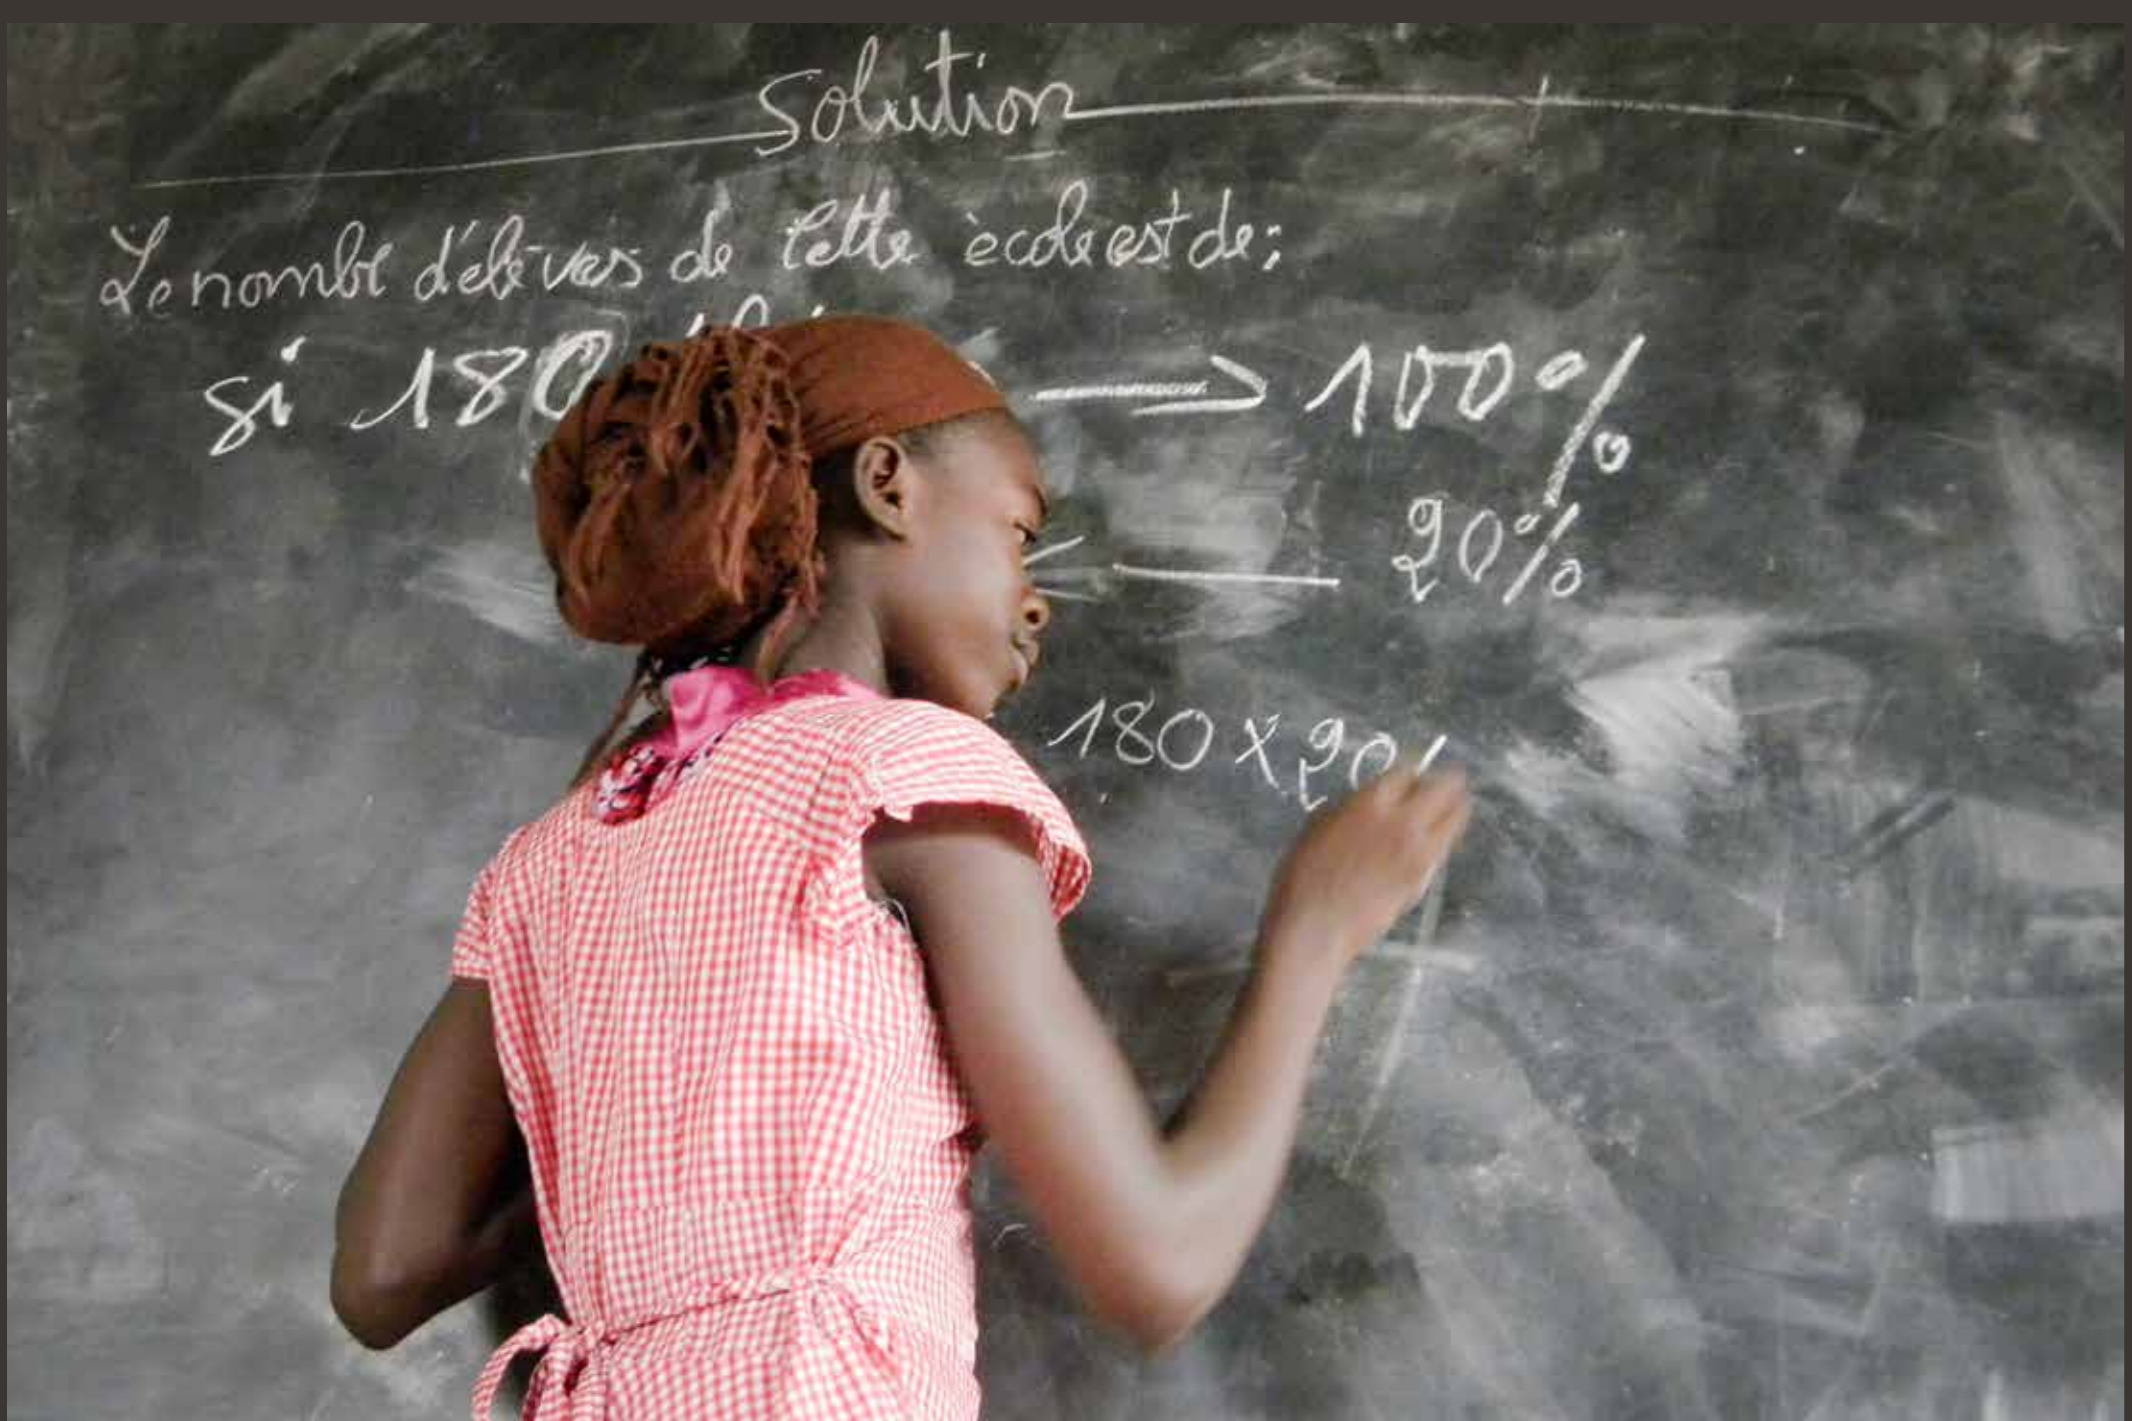 Solution
Le nombre d'élèves de cette école est de;
si 180 → 100%
20%
180 x 20